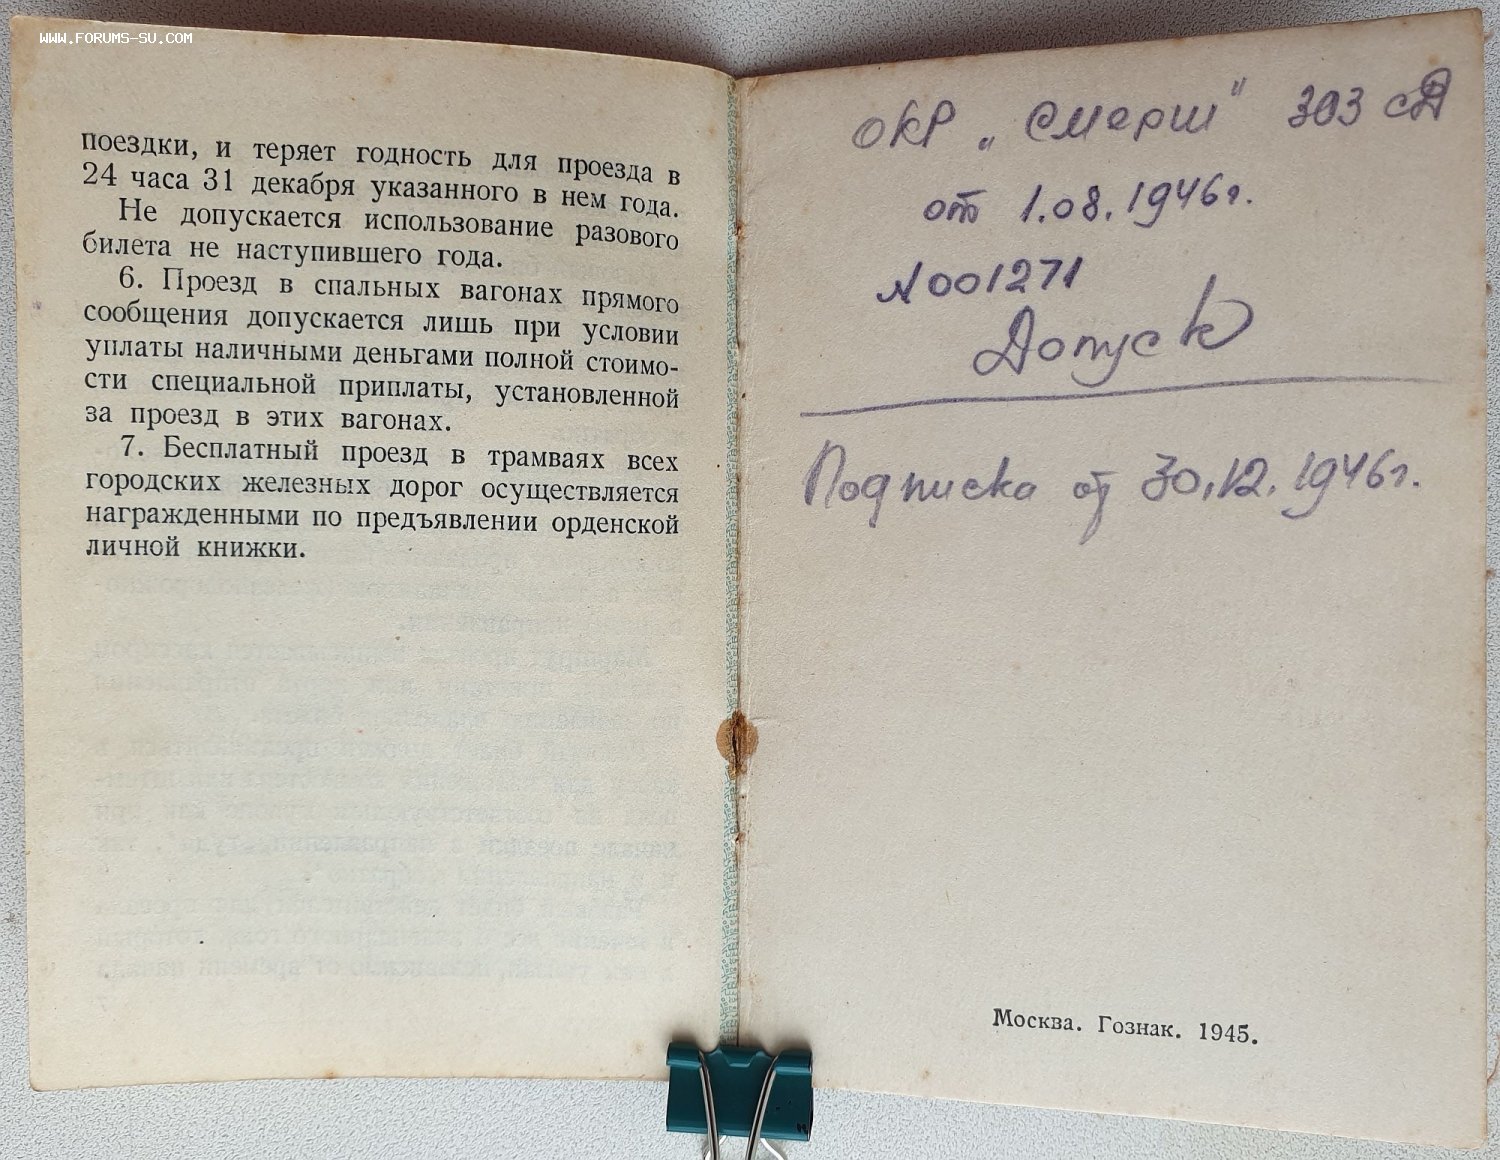 WWW.FORUMS-SU.COM
поездки, и теряет годность для проезда в
24 часа 31 декабря указанного в нем года.
Не допускается использование разового
билета не наступившего года.
6. Проезд в спальных вагонах прямого
сообщения допускается лишь при условии
уплаты наличными деньгами полной стоимо-
сти специальной приплаты, установленной
за проезд в этих вагонах.
7. Бесплатный проезд в трамваях всех
городских железных дорог осуществляется
награжденными по предъявлении орденской
личной книжки.
ОКР „Смерш" 303 сД
от 1.08.1946г.
N001271
Допуск
Подписка от 30.12.1946г.
Москва. Гознак. 1945.